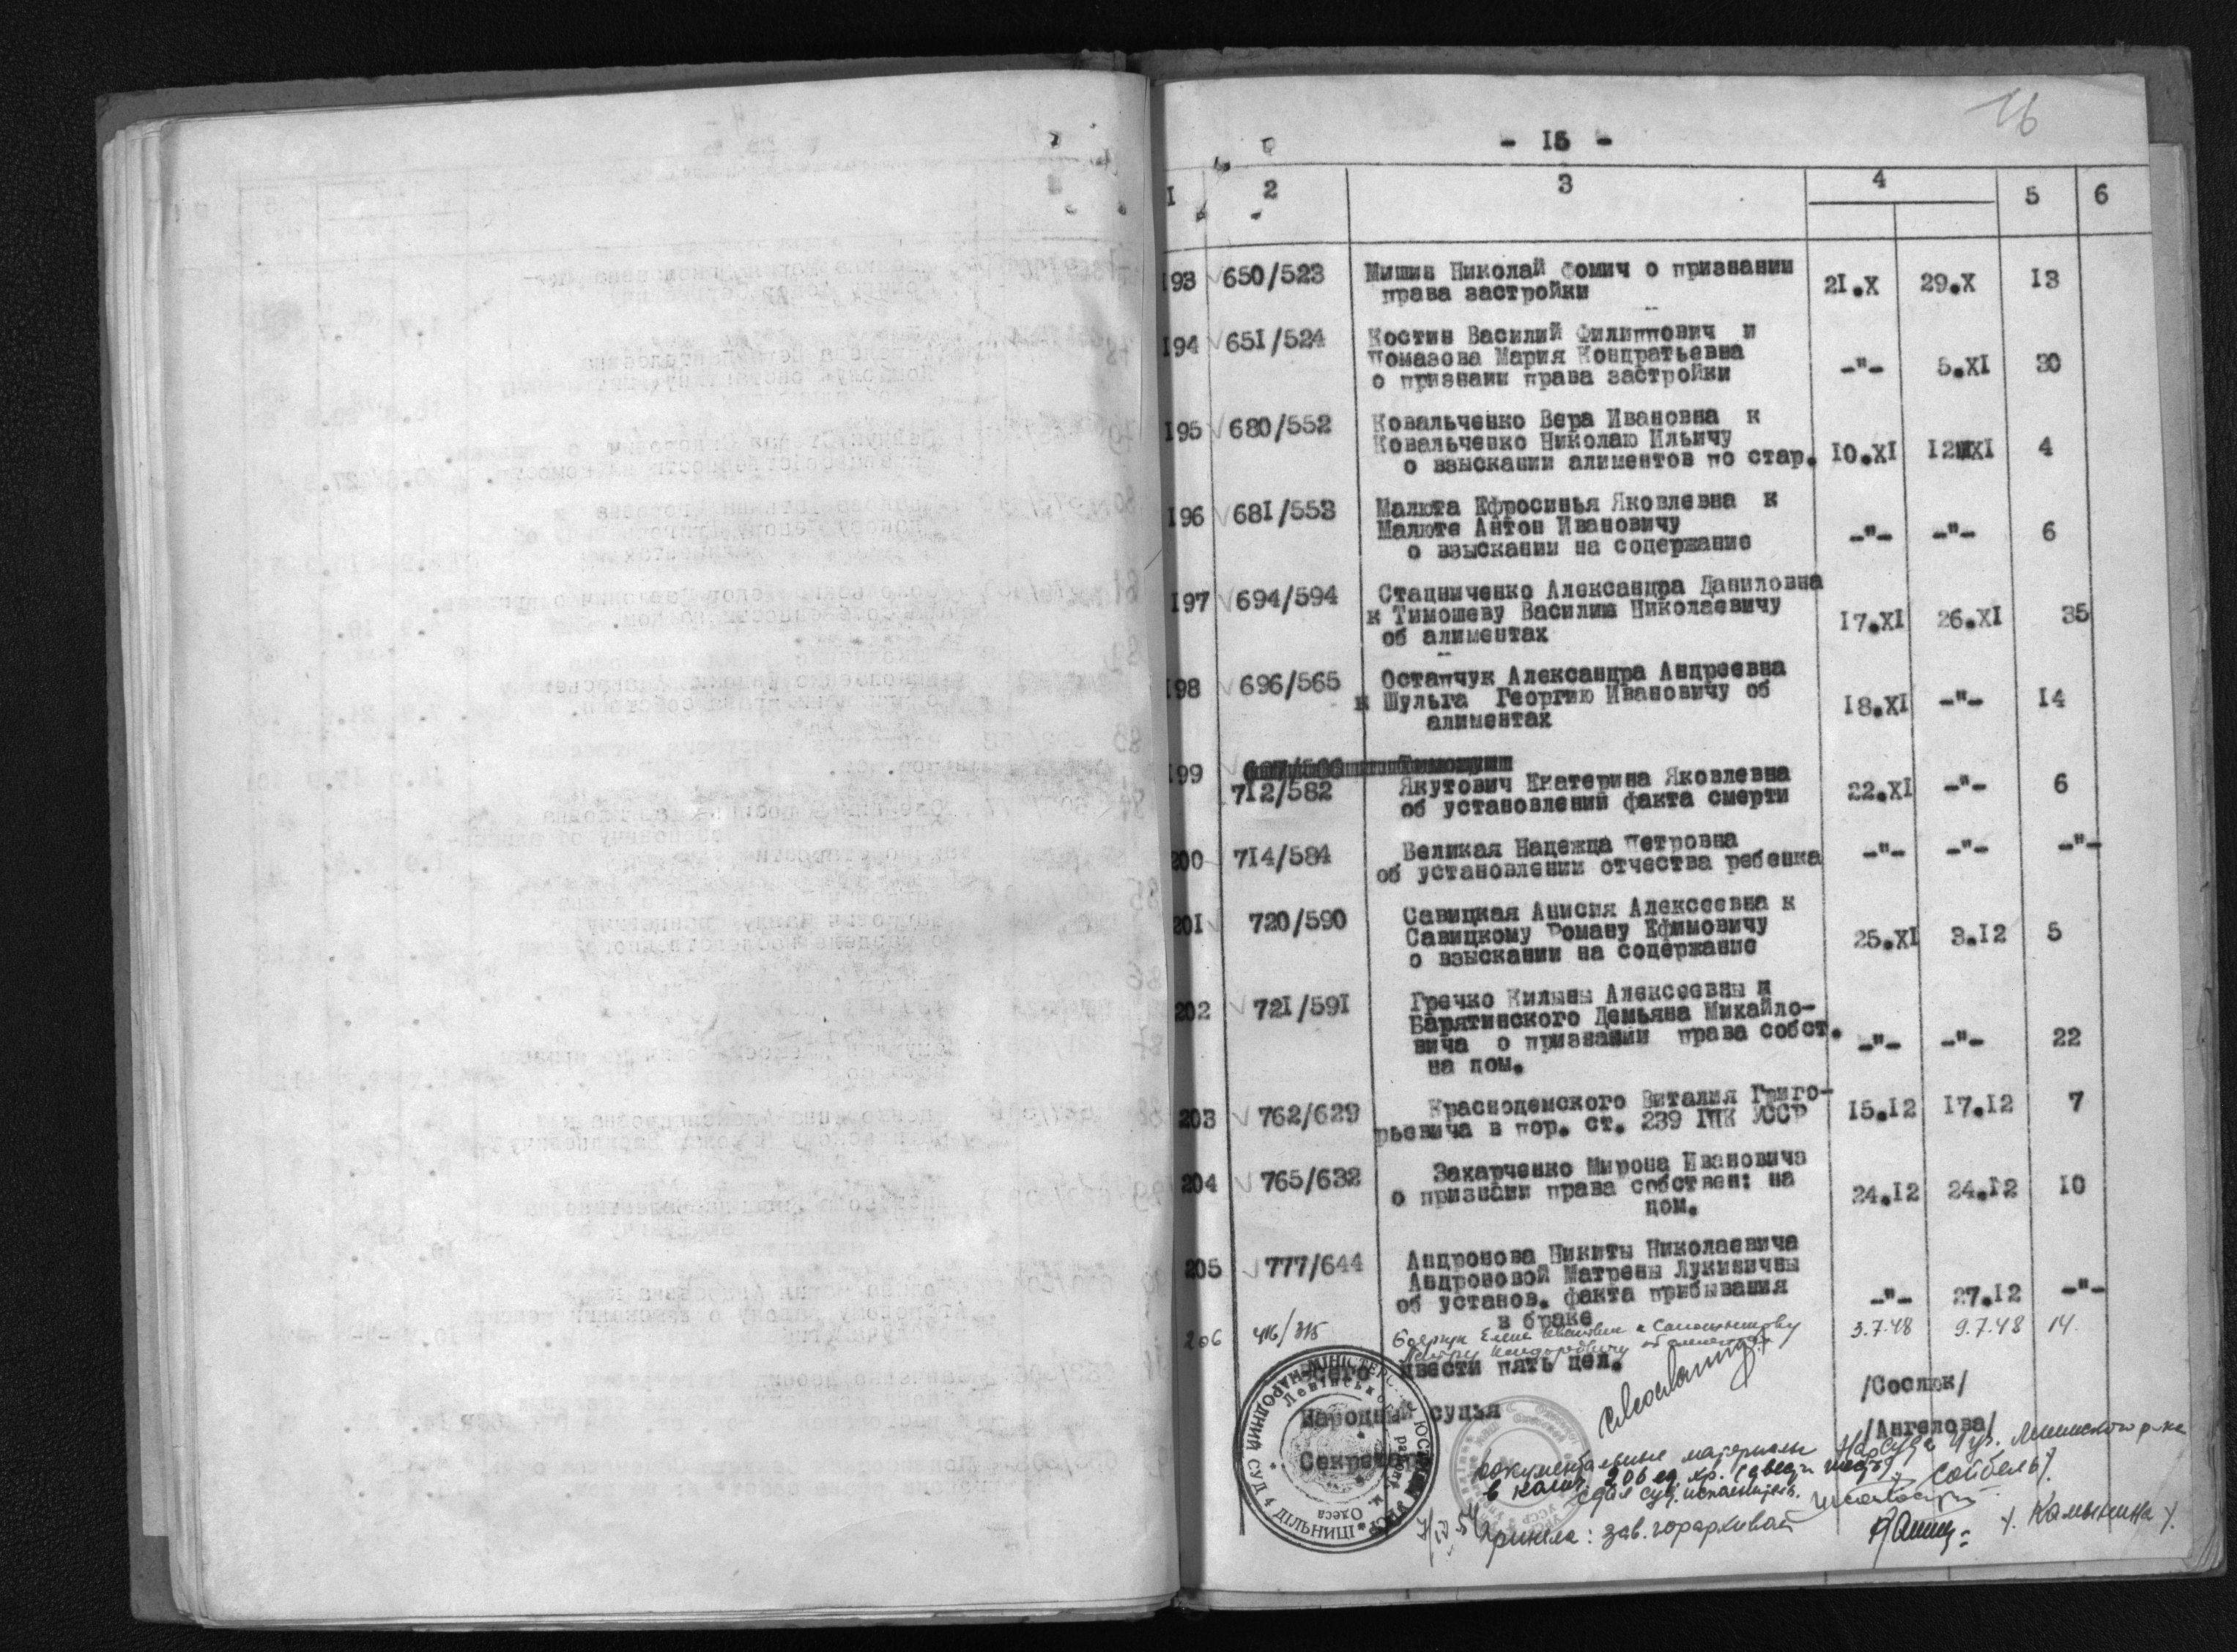 16
- 15 -
1 2 3 4 5 6
193 650/523 Мишин Николай Фомич о признании
права застройки 21.X 29.X 13
194 651/524 Костин Василий Филиппович и
Помазова Мария Кондратьевна
о призвании права застройки -"- 5.XI 30
195 680/552 Ковальченко Вера Ивановна к
Ковальченко Николаю Ильичу
о взыскании алиментов по стар. 10.XI 12.XI 4
196 681/553 Малюта Ефросинья Яковлевна к
Малюте Антон Ивановичу
о взыскании на содержание -"- -"- 6
197 694/594 Стадниченко Александра Даниловна
к Тимошеву Василию Николаевичу
об алиментах 17.XI 26.XI 35
198 696/565 Остапчук Александра Андреевна
к Шульга Георгию Ивановичу об
алиментах 18.XI -"- 14
199
712/582 Якутович Екатерина Яковлевна
об установлений факта смерти 22.XI -"- 6
200 714/584 Великая Надежда Петровна
об установлении отчества ребенка -"- -"- -"-
201 720/590 Савицкая Анисия Алексеевна к
Савицкому Роману Ефимовичу
о взыскании на содержание 25.XI 3.12 5
202 721/591 Гречко Килыны Алексеевны и
Барятинского Демьяна Михайло-
вича о признании права собст.
на дом. -"- -"- 22
203 762/629 Красподемского Виталия Григо-
рьевича в пор. ст. 239 ГПК УССР 15.12 17.12 7
204 765/632 Захарченко Мирона Ивановича
о признани права собствен: на
дом. 24.12 24.12 10
205 777/644 Андронова Никиты Николаевича
Андроновой Матрены Лукиничны
об установ. факта прибывания
в браке -"- 27.12 -"-
206 416/315 Елене к
об 3.7.48 9.7.48 14.
Всего двести пять дел.
/Сослюк/
Народный судья
/Ангелова/
Секретарь
Документальные материалы Нарсуда 4 уч. Ленинского р-на
в колич. 206 ед. хр. (двести шесть)
сдал суд. исполнитель
Приняла: зав. горархивом /. Камынина /.
НАРОДНИЙ СУД 4 ДІЛЬНИЦІ
Ленінського району м. Одеса
МІНІСТЕРСТВО ЮСТИЦІЇ УРСР